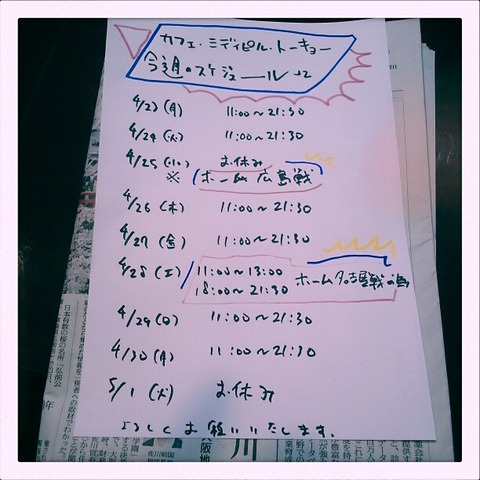 カフェ・ミディピル・トーキョー
今週のスケジュール♪
4/23(月) 11:00~21:30
4/24(火) 11:00~21:30
4/25(水) お休み
※ ホーム広島戦
4/26(木) 11:00~21:30
4/27(金) 11:00~21:30
4/28(土) 11:00~13:00
18:00~21:30 ホーム名古屋戦の為
4/29(日) 11:00~21:30
4/30(月) 11:00~21:30
5/1(火) お休み
よろしくお願いいたします。